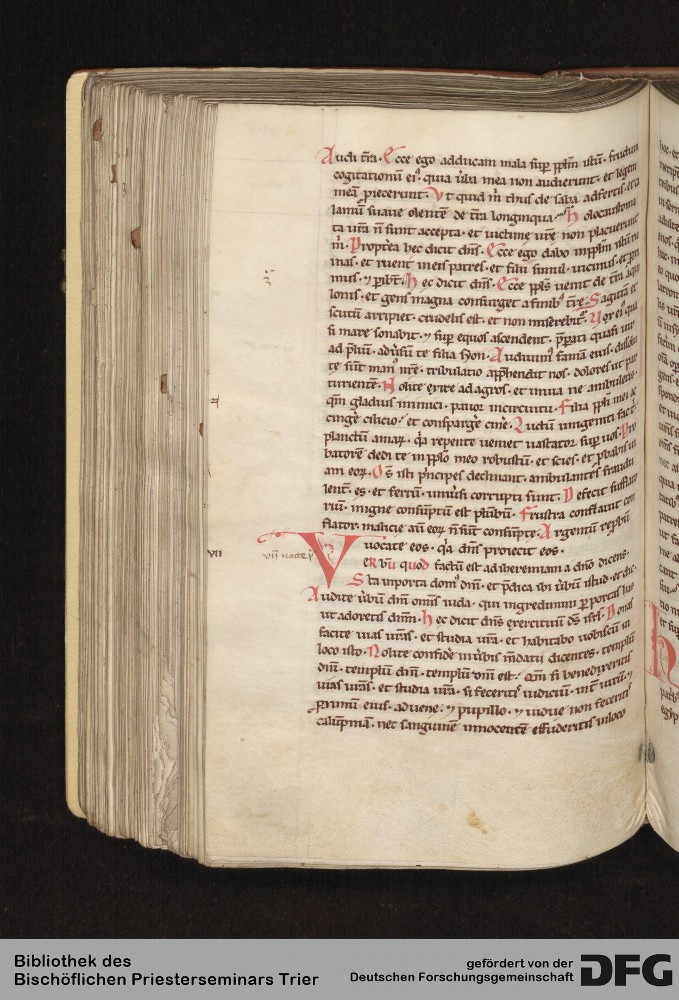 Audi t̄ra. Ecce ego adducam mala suꝑ ppl̄m istū. fructum
cogitationū ei9. quia ūba mea non audierunt. et legem
meā ꝓiecerunt. Vt quid m̄ thus de saba adfertis. et ca
lamū suaue olentē de t̄ra longinqua. Holocaustoma
ta ūra n̄ sunt accepta. et uictime ūre non placuerunt
m̄. Propt̄ea hec dicit dn̄s. Ecce ego dabo in ppl̄m istū rui
nas. et ruent in eis patres. et filii simul. uicinus. et ꝓxi
mus. ⁊ ꝑibt̄. Hec dicit dn̄s. Ecce ppl̄s uenit de t̄ra aqui
lonis. et gens magna consurget a finib9 t̄re. Sagittā et
scutū arripiet. crudelis est. et non miserebit̄. Vox ei9 qua
si mare sonabit. ⁊ suꝑ equos ascendent. p̄parati quasi uir
ad p̄liū. adūsū te filia syon. Audiuim9 famā eius. dissolu
te sūt man9 n̄re. tribulatio app̄hendit nos. dolores ut par
turientē. Nolite exire ad agros. et in uia ne ambuletis.
qm̄ gladius inimici. pauor in circuitu. Filia ppl̄i mei ac
cinge cilicio. et consparge cin̄e. Luctū unigeniti fac t̄.
planctum amarū. q̄a repente ueniet uastator suꝑ uos. Pro
batorē dedi te in ppl̄o meo robustū. et scies. et ꝓbabis ui
am eoꝝ. Om̄s isti p̄ncipes declinant. ambulantes fraudu
lent̄. es. et ferrū. uniūsi corrupti sunt. Defecit sufflato
riū. in igne consūptū est plūbū. Frustra conflauit con
flator. malicie aū eoꝝ n̄ sūt consūpte. Argentū reꝓbū
uocate eos. q̄a dn̄s proiecit eos.
VII
VERBU quod factū est ad iheremiam a dn̄o dicens.
Sta in porta dom9 dn̄i. et p̄dica ibi ūbū istud. et dic.
Audite ūbū dn̄i om̄is iuda. qui ingredimini ꝑ portas has
ut adoretis dn̄m. Hec dicit dn̄s exercituū ds̄ isrl̄. Bonas
facite uias ūras. et studia ūra. et habitabo uobiscū in
loco isto. Nolite confid̄e in ūbis m̄dacii dicentes. templū
dn̄i. templū dn̄i. templū dn̄i est. Qm̄ si benedirexeritis
uias ūras. et studia ūra. si feceritis iudiciū. int̄ uirū. ⁊
ꝓximū eius. aduene. ⁊ pupillo. ⁊ uidue non feceritis
calūpniam. nec sanguinē innocentē effuderitis in loco
Bibliothek des
Bischöflichen Priesterseminars Trier
gefördert von der
Deutschen Forschungsgemeinschaft
DFG